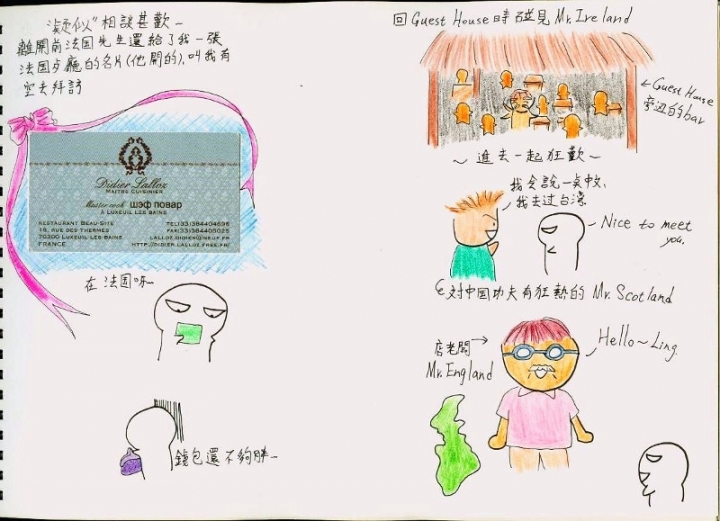 "疑似"相談甚歡~
離開前法国先生還給了我一張
法国歺廳的名片(他開的),叫我有
空去拜訪
Didier Lalloz
MAITRE CUISINIER
Master cook шэф повар
A LUXEUIL LES BAINS
RESTAURANT BEAU-SITE
18, RUE DES THERMES
70300 LUXEUIL-LES-BAINS
FRANCE
TEL(33)384404696
FAX(33)384405025
LALLOZ.DIDIER@NEUF.FR
HTTP://DIDIER.LALLOZ.FREE.FR/
在法国呀~
錢包還不夠胖~
回Guest House時碰見Mr.Ireland
←Guest House
旁边的bar
~進去一起狂歡~
我会說一点中文,
我去过台湾
Nice to meet
you.
对中国功夫有狂熱的 Mr.Scotland
店老闆→
Mr.England
Hello~Ling.